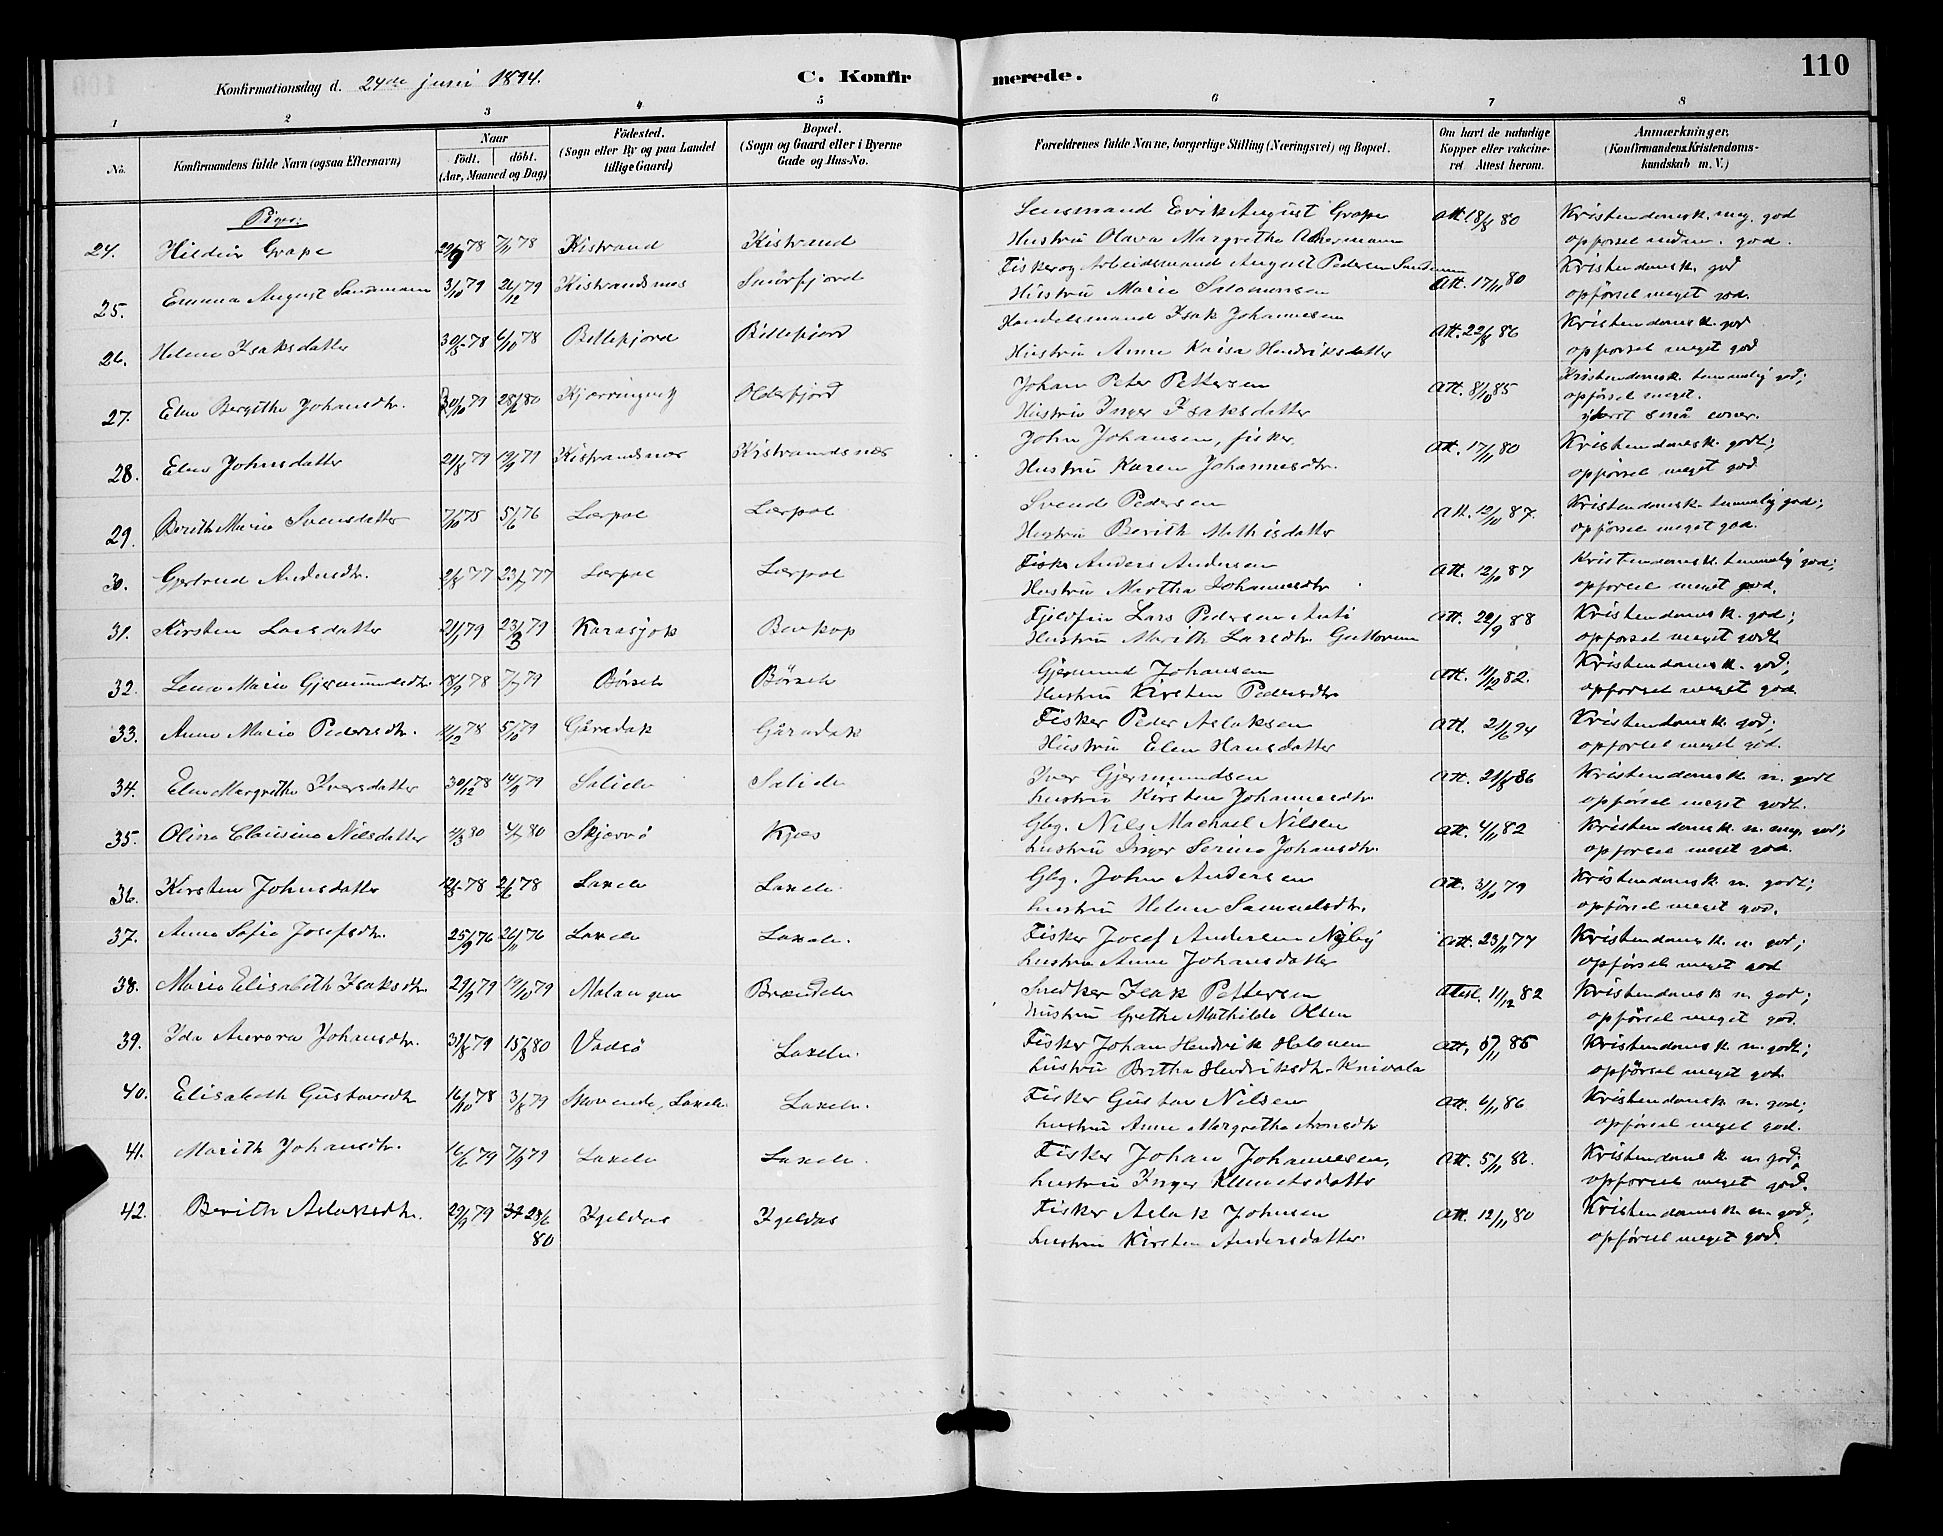 Konfirmationsdag d. 24de juni 1894. C. Konfirmerede. 110
1 2 3 4 5 6 7 8
No. Konfirmandens fulde Navn (ogsaa Efternavn) Naar født. døbt. (Aar, Maaned og Dag) Fødested. (Sogn eller By og paa Landet tillige Gaard) Bopæl. (Sogn og Gaard eller i Byerne Gade og Hus-No. Forældrenes fulde Navne, borgerlige Stilling (Næringsvei) og Bopæl. Om havt de naturlige Kopper eller vakcineret Attest herom. Anmærkninger. (Konfirmandens Kristendomskundskab m. V.)
Piger:
24. Hildur Grape 29/9 78 7/11 78 Kistrand Kistrand Lensmand Erik August Grape Att. 18/8 80 Kristendomsk. meg. god
Hustru Olava Margrethe Akermann opførsel god.
25. Emma August Sandmann 3/10 79 26/12 79 Kistrandsnes Smörfjord Fisker og Arbeidsmand August Pedersen Sandmann Att. 17/11 80 Kristendomsk. god
Hustru Marie Salomonsen opførsel meget god.
26. Helene Isaksdatter 30/8 78 6/10 78 Billefjord Billefjord Handelsmand Isak Johannesen Att. 22/8 86 Kristendomsk. god
Hustru Anna Kaisa Hendriksdatter opførsel meget god
27. Elen Bergithe Johansdtr. 30/10 79 28/6 80 Kjærringvig Olderfjord Johan Peter Pettersen Att. 8/10 85 Kristendomsk. temmelig god;
Hustru Inger Isaksdatter opførsel meget.
yderst små evner.
28. Elen Johnsdatter 21/8 79 14/9 79 Kistrandsnes Kistrandsnes John Johansen, fisker Att. 17/11 80 Kristendomsk. godt;
Hustru Karen Johannesdtr. opførsel meget god
29. Berith Maria Svensdatter 7/10 75 5/6 76 Lærpol Lærpol Svend Pedersen Att. 12/10 87. Kristendomsk. temmelig god;
Hustru Berith Mathisdatter opførsel meget god.
30. Gjertrud Andersdtr. 2/8 77 23/9 77 Lærpol Lærpol Fisker Anders Andersen Att. 12/10 87 Kristendomsk. temmelig god;
Hustru Martha Johannesdtr opførsel meget god.
31. Kirsten Larsdatter 21/1 79 23/3 79 Karasjok Bevkop Fjeldfin Lars Pedersen Anti Att. 22/9 88 Kristendomsk. god;
Hustru Marith Larsdtr. Guttorm opførsel meget godt
32. Lena Maria Gjermundsdtr. 18/9 78 7/7 79 Børselv Børselv Gjermund Johansen Att. 11/12 82. Kristendomsk. god;
Hustru Kirsten Pedersdtr opførsel meget god.
33. Anna Maria Pedersdtr. 11/12 78 5/10 79 Gåradak Gåradak Fisker Peder Aslaksen Att. 21/6 94 Kristendomsk. god;
Hustru Elen Hansdatter opførsel meget god.
34. Elen Margrethe Iversdatter 30/12 78 14/9 79 Iver Gjermundsen Att. 21/8 86 Kristendomsk. m. godt
hustru Kirsten Johannesdtr. opførsel meget godt.
35. Olina Clausina Nilsdatter 80 80 Skjervö Kjæs Gbg. Nils Machael Nilsen Att. 4/11 82 Kristendomsk. m. meg. god;
hustru Inger Serina Johansdtr. opførsel meget god.
36. Kirsten Johnsdatter 12/5 78 2/6 78 Laxelv Laxelv. Gbg. John Andersen Att. 31/10 79 Kristendomsk. m. godt;
hustru Helene Samuelsdtr. opførsel meget god.
37. Anna Sofie Josefsdtr. 25/9 76 26/11 76 Laxelv Laxelv. Fisker Josef Andersen Nyby Att. 23/11 77 Kristendomsk. m. god;
hustru Anna Johansdatter opførsel meget god
38. Maria Elisabeth Isaksdtr. 29/9 79 19/10 79 Malangen Brændelv Snedker Isak Pettersen Attest. 11/12 82 Kristendomsk m. god;
hustru Grethe Mathilde Olsen opførsel meget god.
39. Ida Aurora Johansdtr. 31/8 79 15/8 80 Vadsø Laxelv. Fisker Johan Hendrik Halonen Att. 85 Kristendomsk. m. godt;
hustru Bretha Hendriksdtr. Knivala opførsel meget god.
40. Elisabeth Gustavsdtr 16/10 78 3/8 79 Laxelv Laxelv. Fisker Gustav Nilsen Att. 6/11 86 Kristendomsk. m. god;
hustru Anna Margretha Aronsdtr opførsel meget god.
41. Marith Johansdtr. 16/6 79 7/9 79 Laxelv Laxelv. Fisker Johan Johannesen, Att. 5/11 86. Kristendomsk. m god;
hustru Inger Klemetsdatter opførsel meget god.
42. Berith Aslaksdtr. 29/9 79 28/6 80 Igeldas Igeldas Fisker Aslak Johnsen Att. 12/11 80 Kristendomsk m. god;
hustru Kirsten Andersdatter. opførsel meget god.